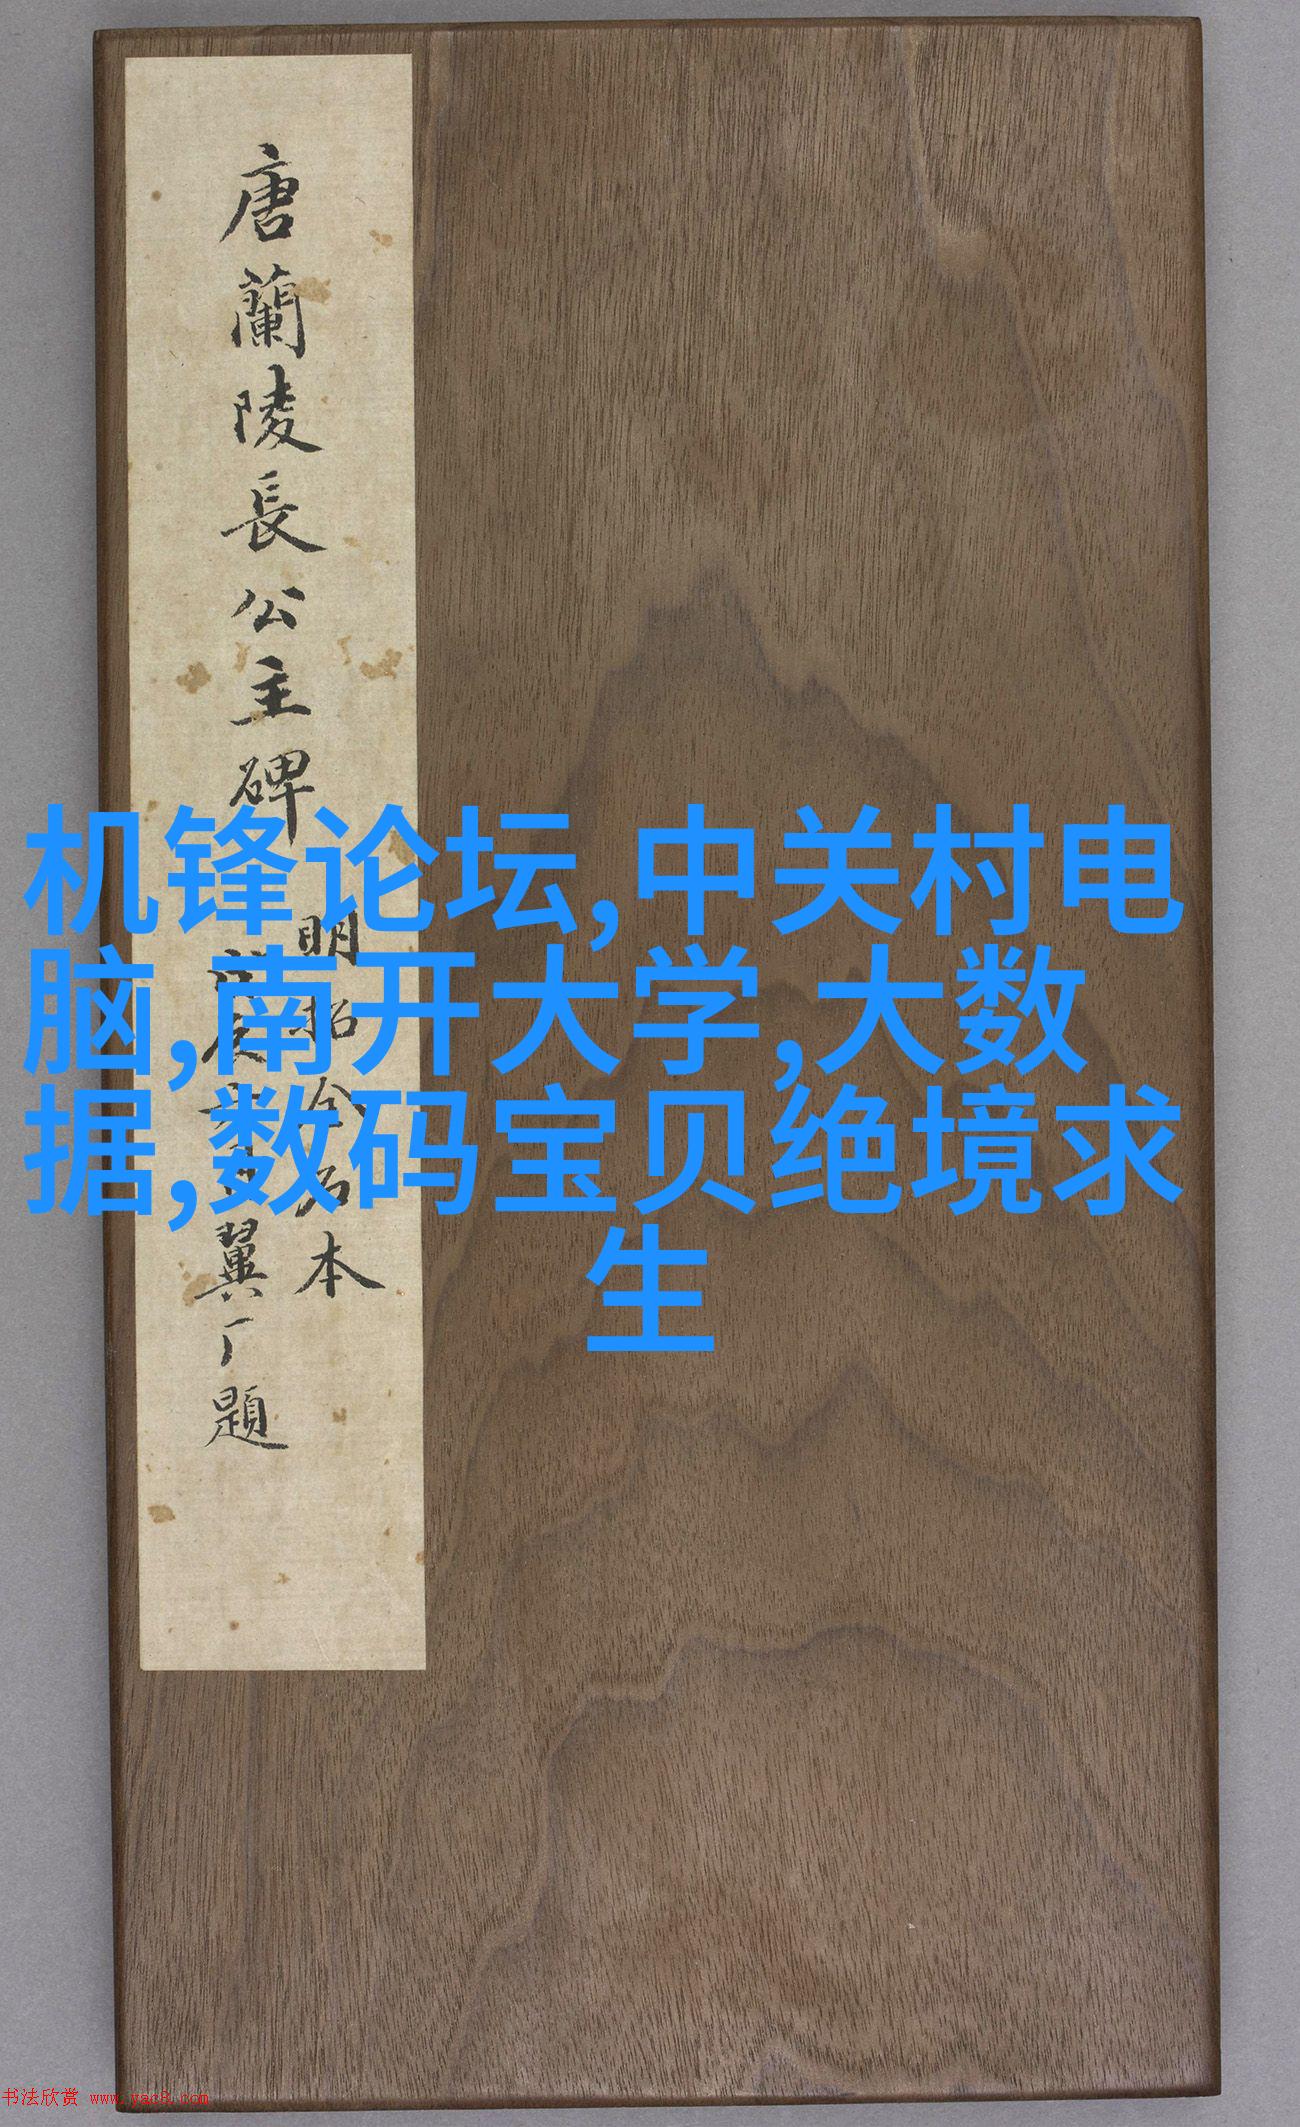 唐蘭陵長公主碑
明拓全石本
翼厂題
机锋论坛,中关村电
脑,南开大学,大数
据,数码宝贝绝境求
生
书法欣赏 www.yac8.com